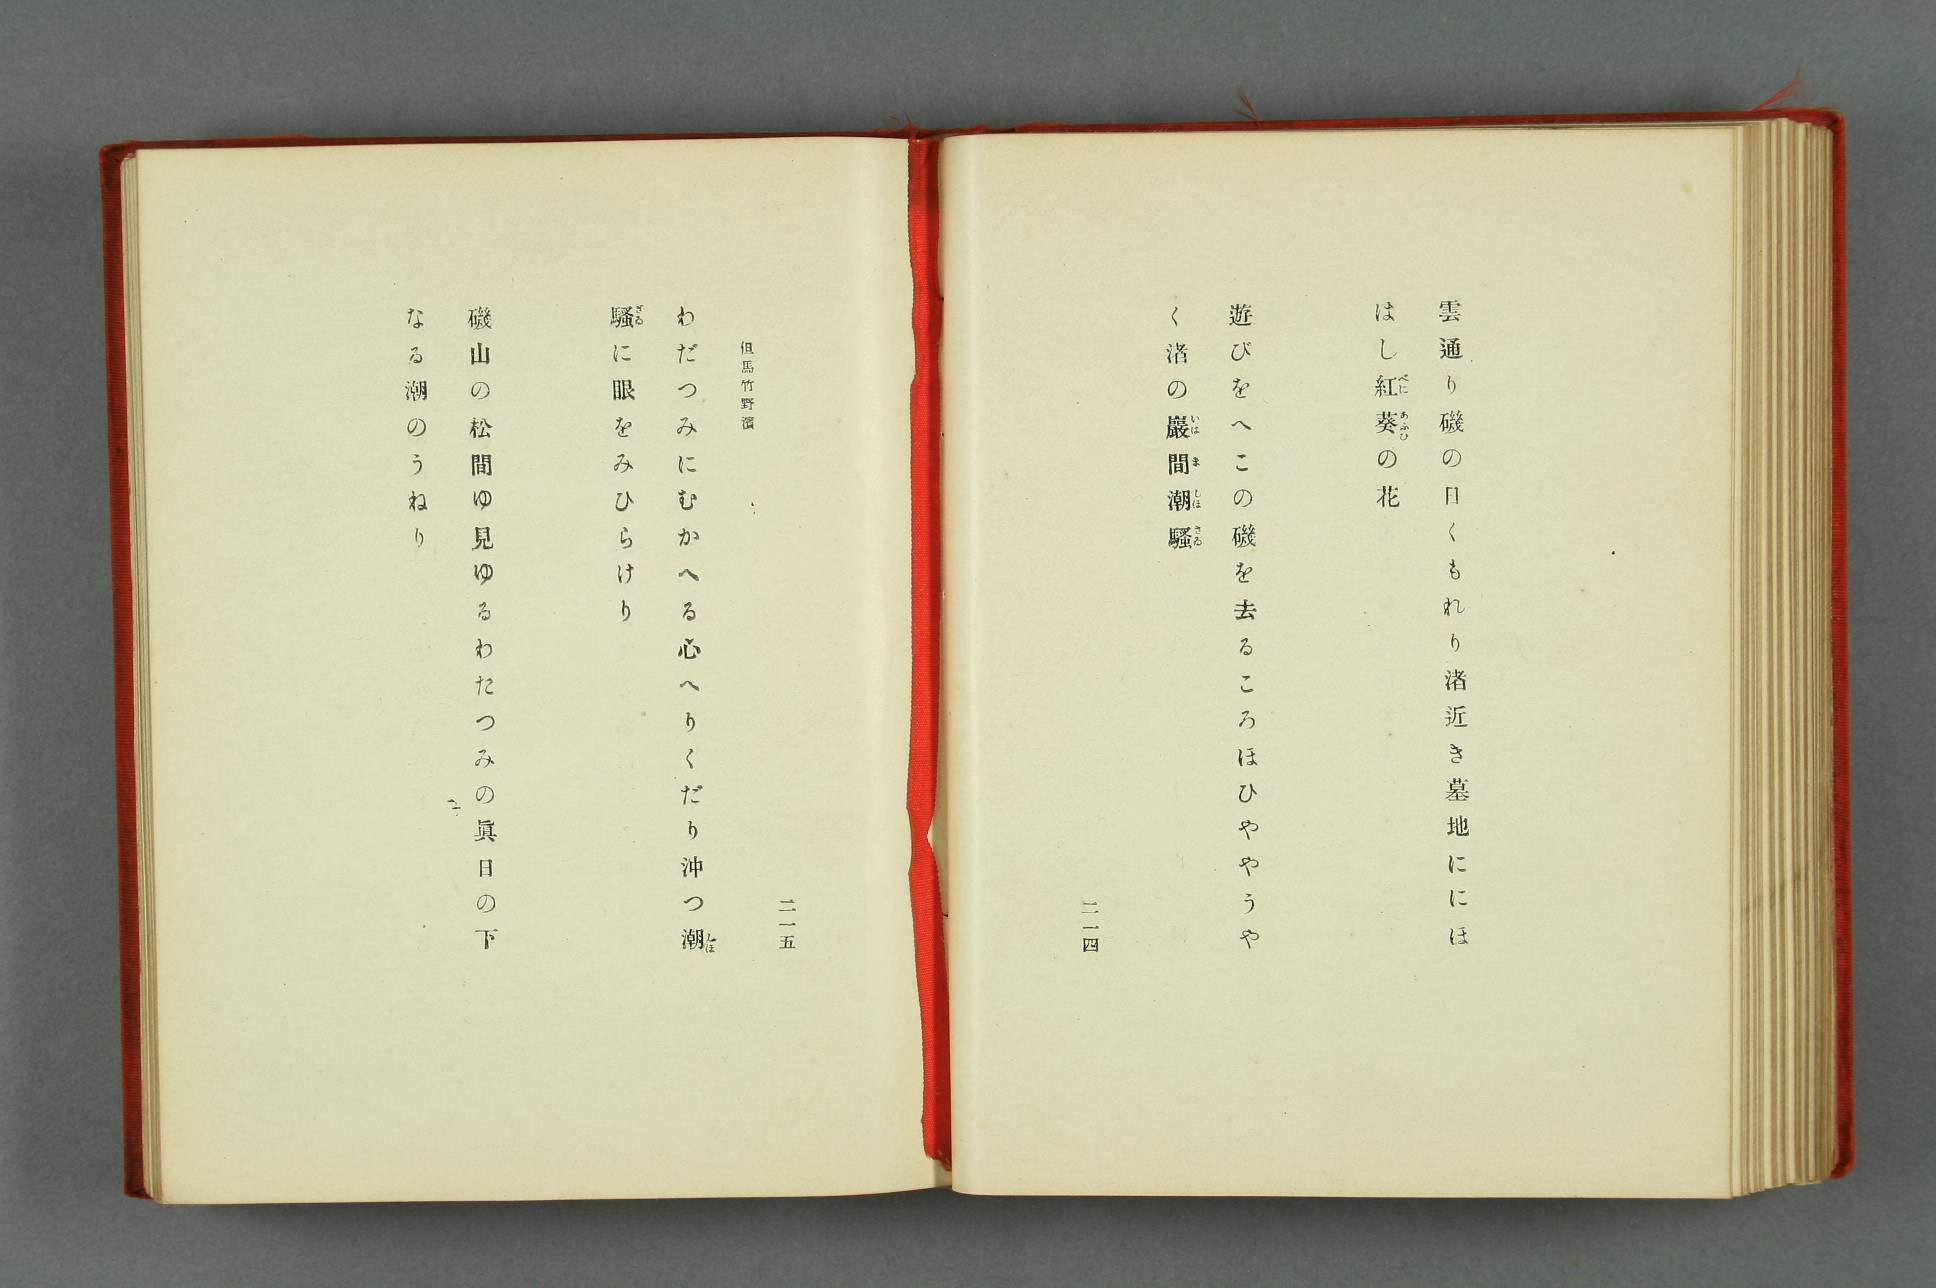 雲通り磯の日くもれり渚近き墓地ににほ
はし紅葵の花
遊びをへこの磯を去るころほひややうや
く渚の巖間潮騷
二一四
二一五
但馬竹野濱
わだつみにむかへる心へりくだり沖つ潮
騷に眼をみひらけり
磯山の松間ゆ見ゆるわたつみの眞日の下
なる潮のうねり